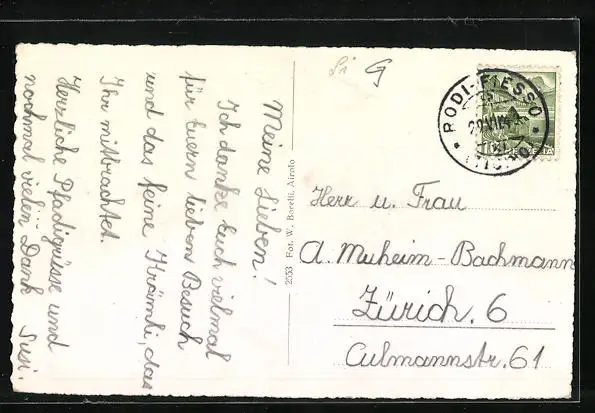 Meine Lieben!
Ich danke Euch vielmal
für Euern lieben Besuch
und das feine Krömli, das
Ihr mitbrachtet.
Herzliche Pfadigrüsse und
nochmal vielen Dank Susi.
2553 Fot. W. Borelli, Airolo
G
RODI-FIESSO
(TICINO)
HELVETIA
Herr u. Frau
A. Muheim-Bachmann
Zürich. 6
Culmannstr. 61